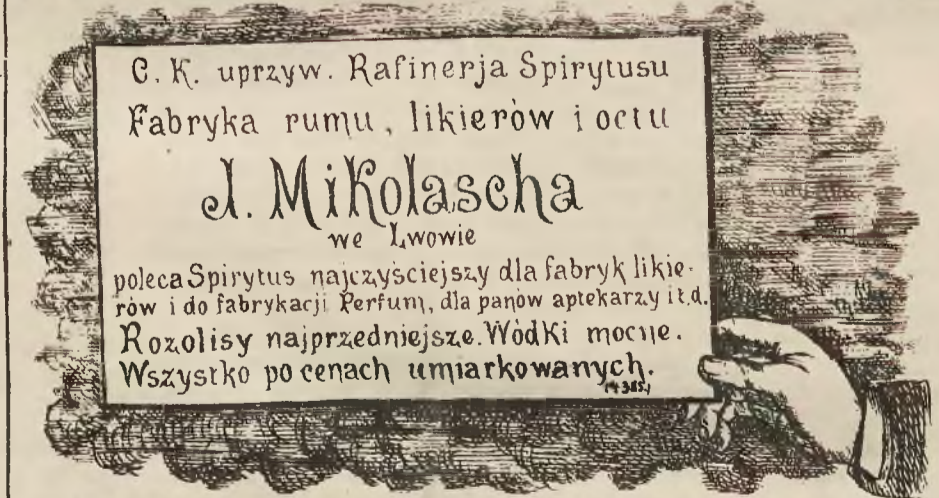 C. K. uprzyw. Rafinerja Spirytusu
Fabryka rumu, likierów i octu
J. Mikolascha
we Lwowie
poleca Spirytus najczyściejszy dla fabryk likie-
rów i do fabrykacji Perfum, dla panów aptekarzy i t.d.
Rozolisy najprzedniejsze. Wódki mocne.
Wszystko po cenach umiarkowanych.